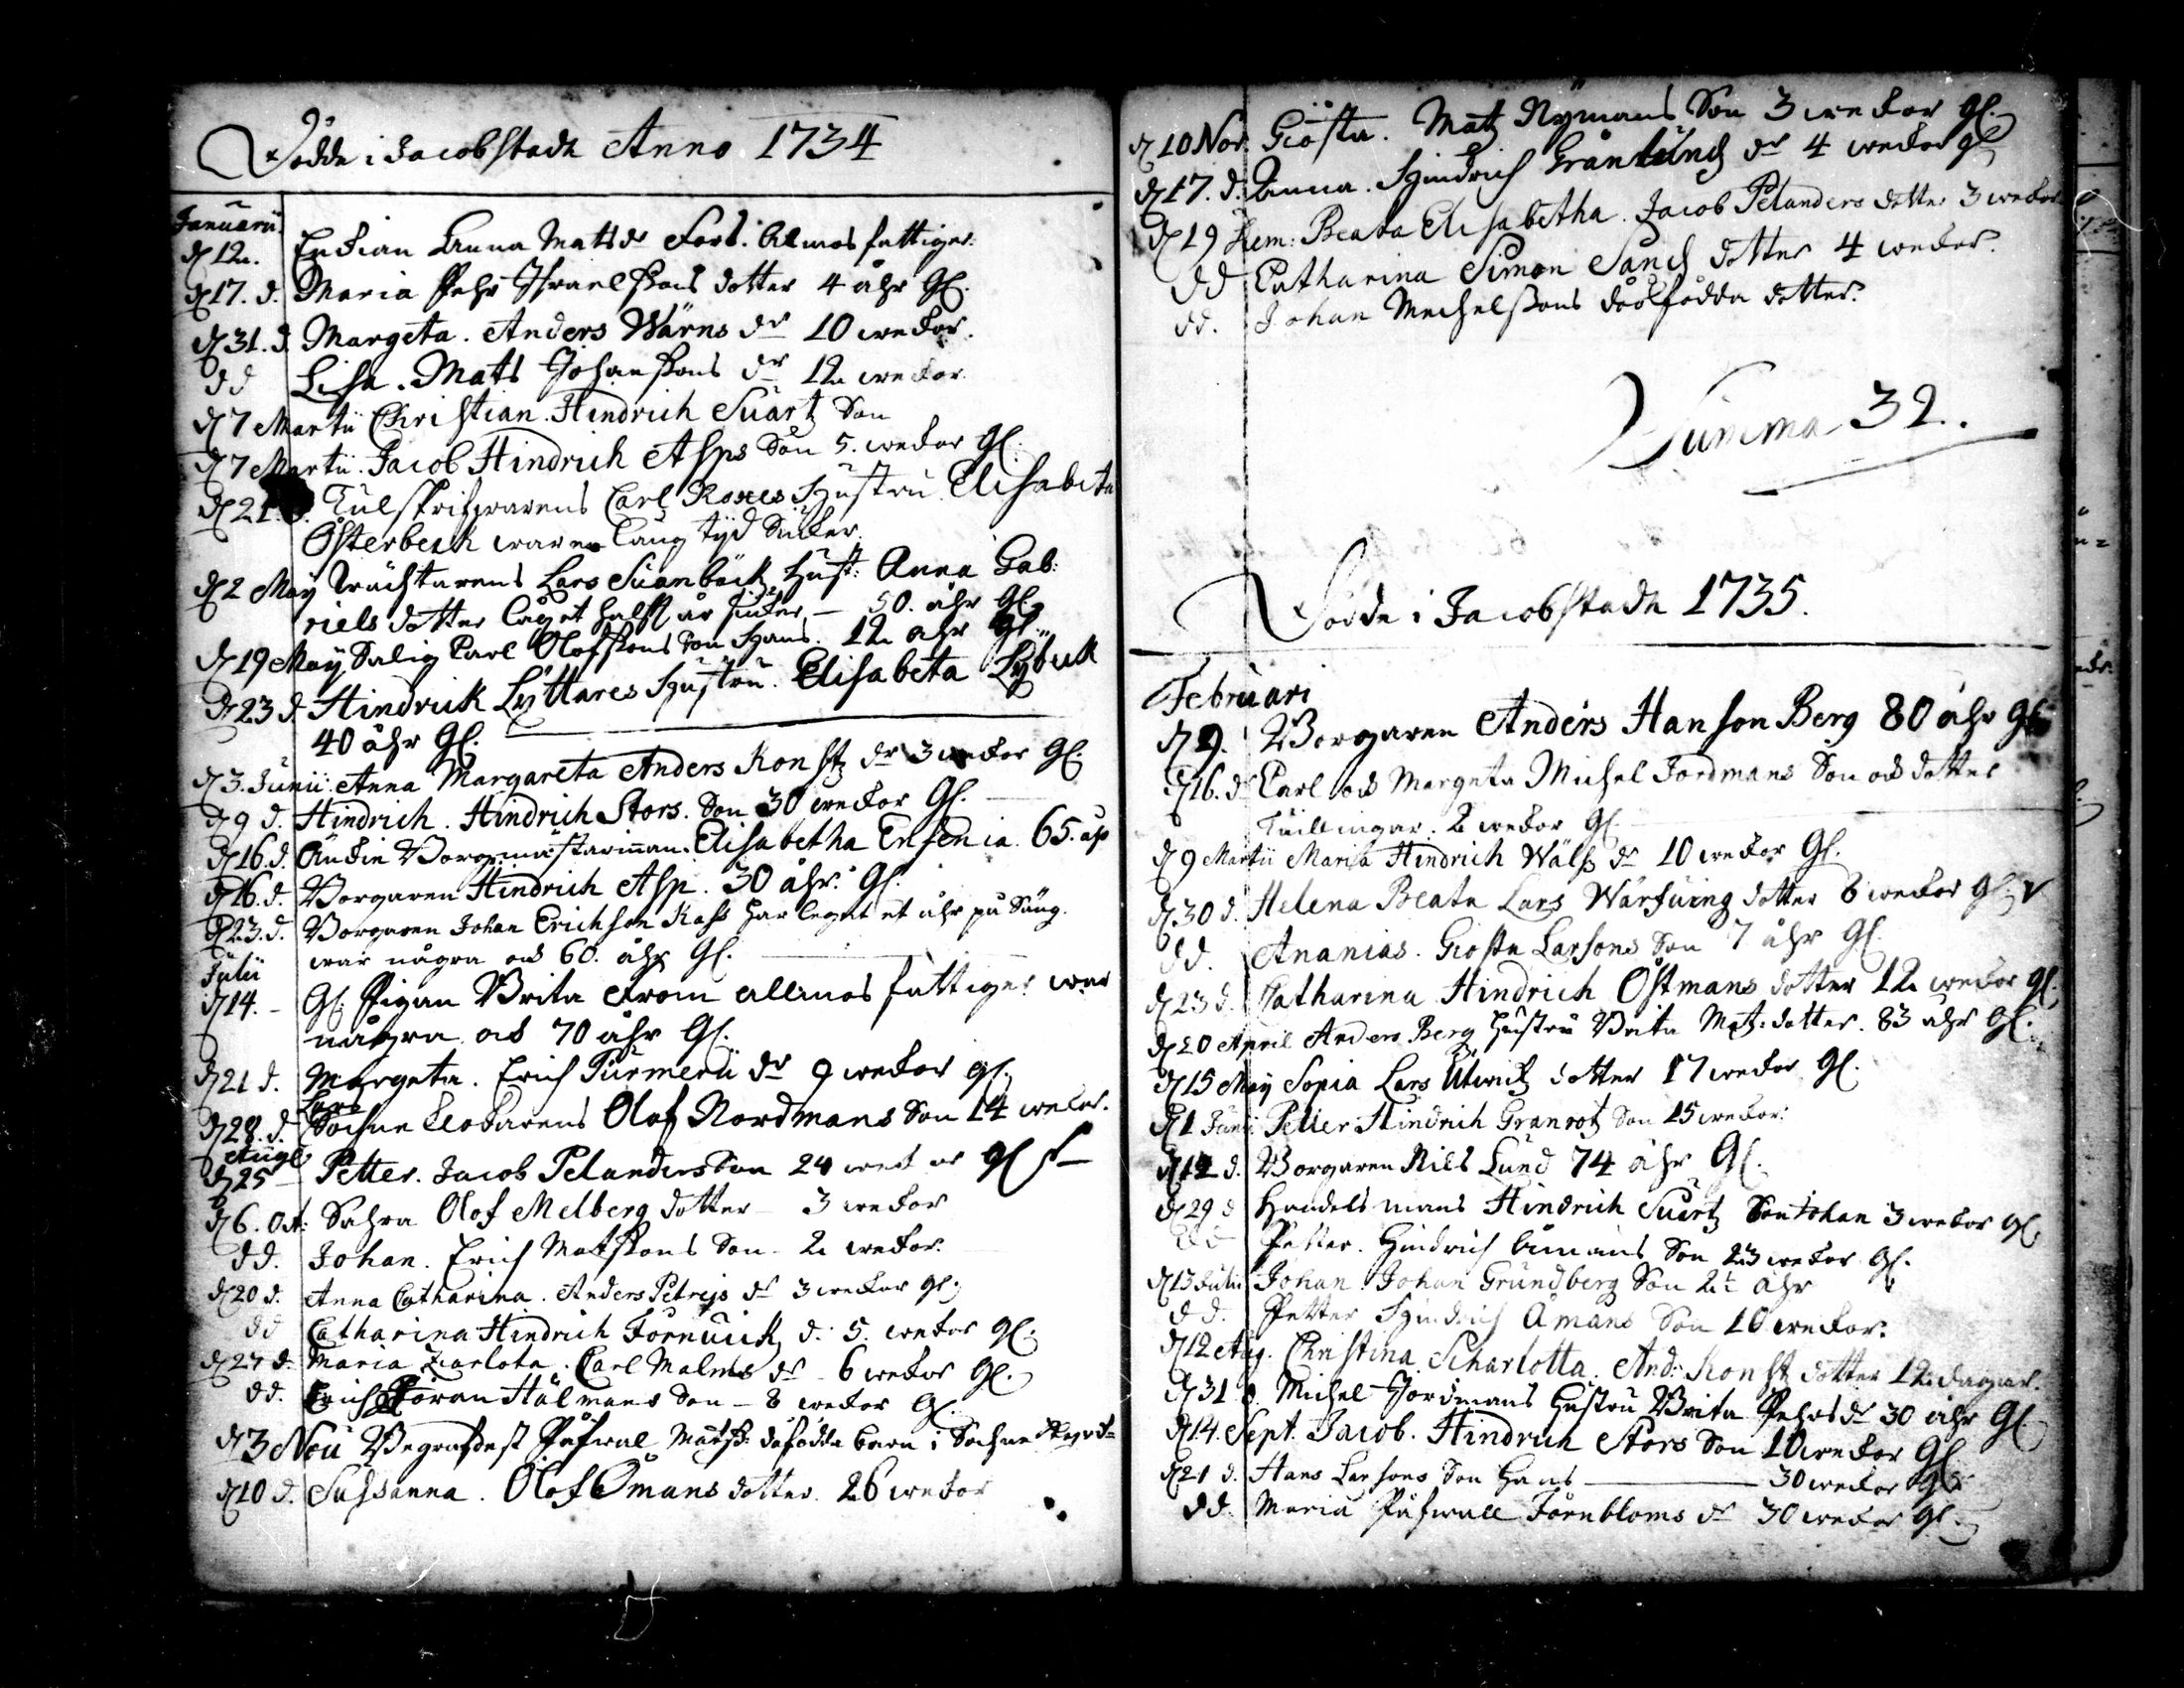 Dödde i Jacobstadh Anno 1734
Januarii
d 12. Enkian Anna Matsdr Fors. Almosfattiger.
d 17. d. Maria Pehr Israelssons dotter 4 åhr Gl.
d 31. d. Margeta. Anders Wärns dr 10 wekor.
dd Lisa. Mats Johanssons dr 12 wekor.
d 7 Martii Christian. Hindrich Suartz Son
d 7 Martii. Jacob Hindrich Asps Son 5. wekor gl.
d 21. d. Tulskrifwarens Carl Roxes Hustru Elisabeta
Österbeck warne lång tyd Siuker.
d 2 May Wächtarens Lars Suanbäck Hust: Anna Gab:
riels dotter låg et halft år siuker — 50. åhr Gl.
d 19 May Salig Carl Olofssons Son Hans. 12 åhr Gl.
d 23 d Hindrick Lyttares Hustru. Elisabeta Lybeck
40 åhr Gl.
d 3. Junii. Anna Margareta Anders Konstz dr 3 wekor Gl.
d 9 d. Hindrich. Hindrich Stors. Son 30 wekor Gl.
d 16. d. Änkie Borgmästarinnan. Elisabetha Ensenia. 65. åhr
d 16. d. Borgaren Hindrich Asp. 30 åhr. Gl.
d 23. d. Borgaren Johan Erichson Kass har legat et åhr på Säng.
war några och 60. åhr Gl.
Julii
d 14. – Gl. Pigan Brita Krom allmosfattiger war
några och 70 åhr Gl.
d 21 d. Margeta. Erich Purmerü dr 9 wekor gl.
Lars
d 28. d. Sochne Klockarens Olof Nordmans Son 14 wekor.
Aug:
d 25 – Petter. Jacob Pelanders Son 24 wekor gl
d 6. Oct: Sahra Olof Melberg dotter – 3 wekor
dd. Johan. Erich Matssons Son – 2 wekor.
d 20 d. Anna Catharina. Anders Petrejs dr 3 wekor gl.
dd Catharina Hindrich Törnuick d. 5. wekor gl.
d 27 d. Maria Zarlota. Carl Malms dr – 6 wekor Gl.
dd. Erich Göran Hälmans Son – 8 wekor Gl.
d 3 Nou Begrafdest Påfwal Matss: döfödda barn i Sochne
d 10 d. Suhsanna. Olof Ömans dotter. 26 wekor
d 10 Nov. Giösta. Matz Nymans Son 3 wekor gl.
d 17. d. Anna. Hindrich Granlund dr 4 wekor gl
d 19 Xem: Beata Elisabetha. Jacob Pelanders dotter 3 wekor
dd Catharina Simon Sand dotter 4 wekor.
dd. Johan Mechelssons dödfödda dotter.
Summa 32.
Dödde i Jacobstadh 1735.
Februari
d 9. Borgaren Anders Hanson Berg 80 åhr gl
d 16. d. Carl och Margeta Michel Jordmans Son och dotter
Tuillingar. 2 wekor Gl
d 9 Martii Maria Hindrich Wälss dr 10 wekor Gl.
d 30 d. Helena Beata Lars Wärfuing dotter 8 wekor gl.
dd. Ananias. Giösta Larsons Son 7 åhr Gl.
d 23 d. Catharina Hindrich Östmans dotter 12 wekor gl.
d 20 April Anders Berg Hustru Brita Matz: dotter. 83 åhr Gl.
d 15 May Sopia Lars Utwick dotter 17 wekor Gl.
d 1 Junii Petter Hindrich Granrotz Son 15 wekor:
d 12 d. Borgaren Nils Lund 74 åhr Gl.
d 29 d Handelsmans Hindrich Suartz Son Johan 3 wekor gl.
dd Petter. Hindrich Åmans Son 23 wekor Gl.
d 13 Julii Johan. Johan Grundberg Son 2½ åhr
dd. Petter Hindrich Åmans Son 10 wekor.
d 12 Aug. Christina Scharlotta. And: Konst dotter 12 dagar.
d 31 d. Michel Jordmans Hustru Brita Pehrsdr 30 åhr Gl
d 14. Sept. Jacob. Hindrich Stors Son 10 wekor Gl
d 21 d. Hans Larsons Son Hans — 30 wekor Gl
dd. Maria Påfwall Törnbloms dr 30 wekor Gl.